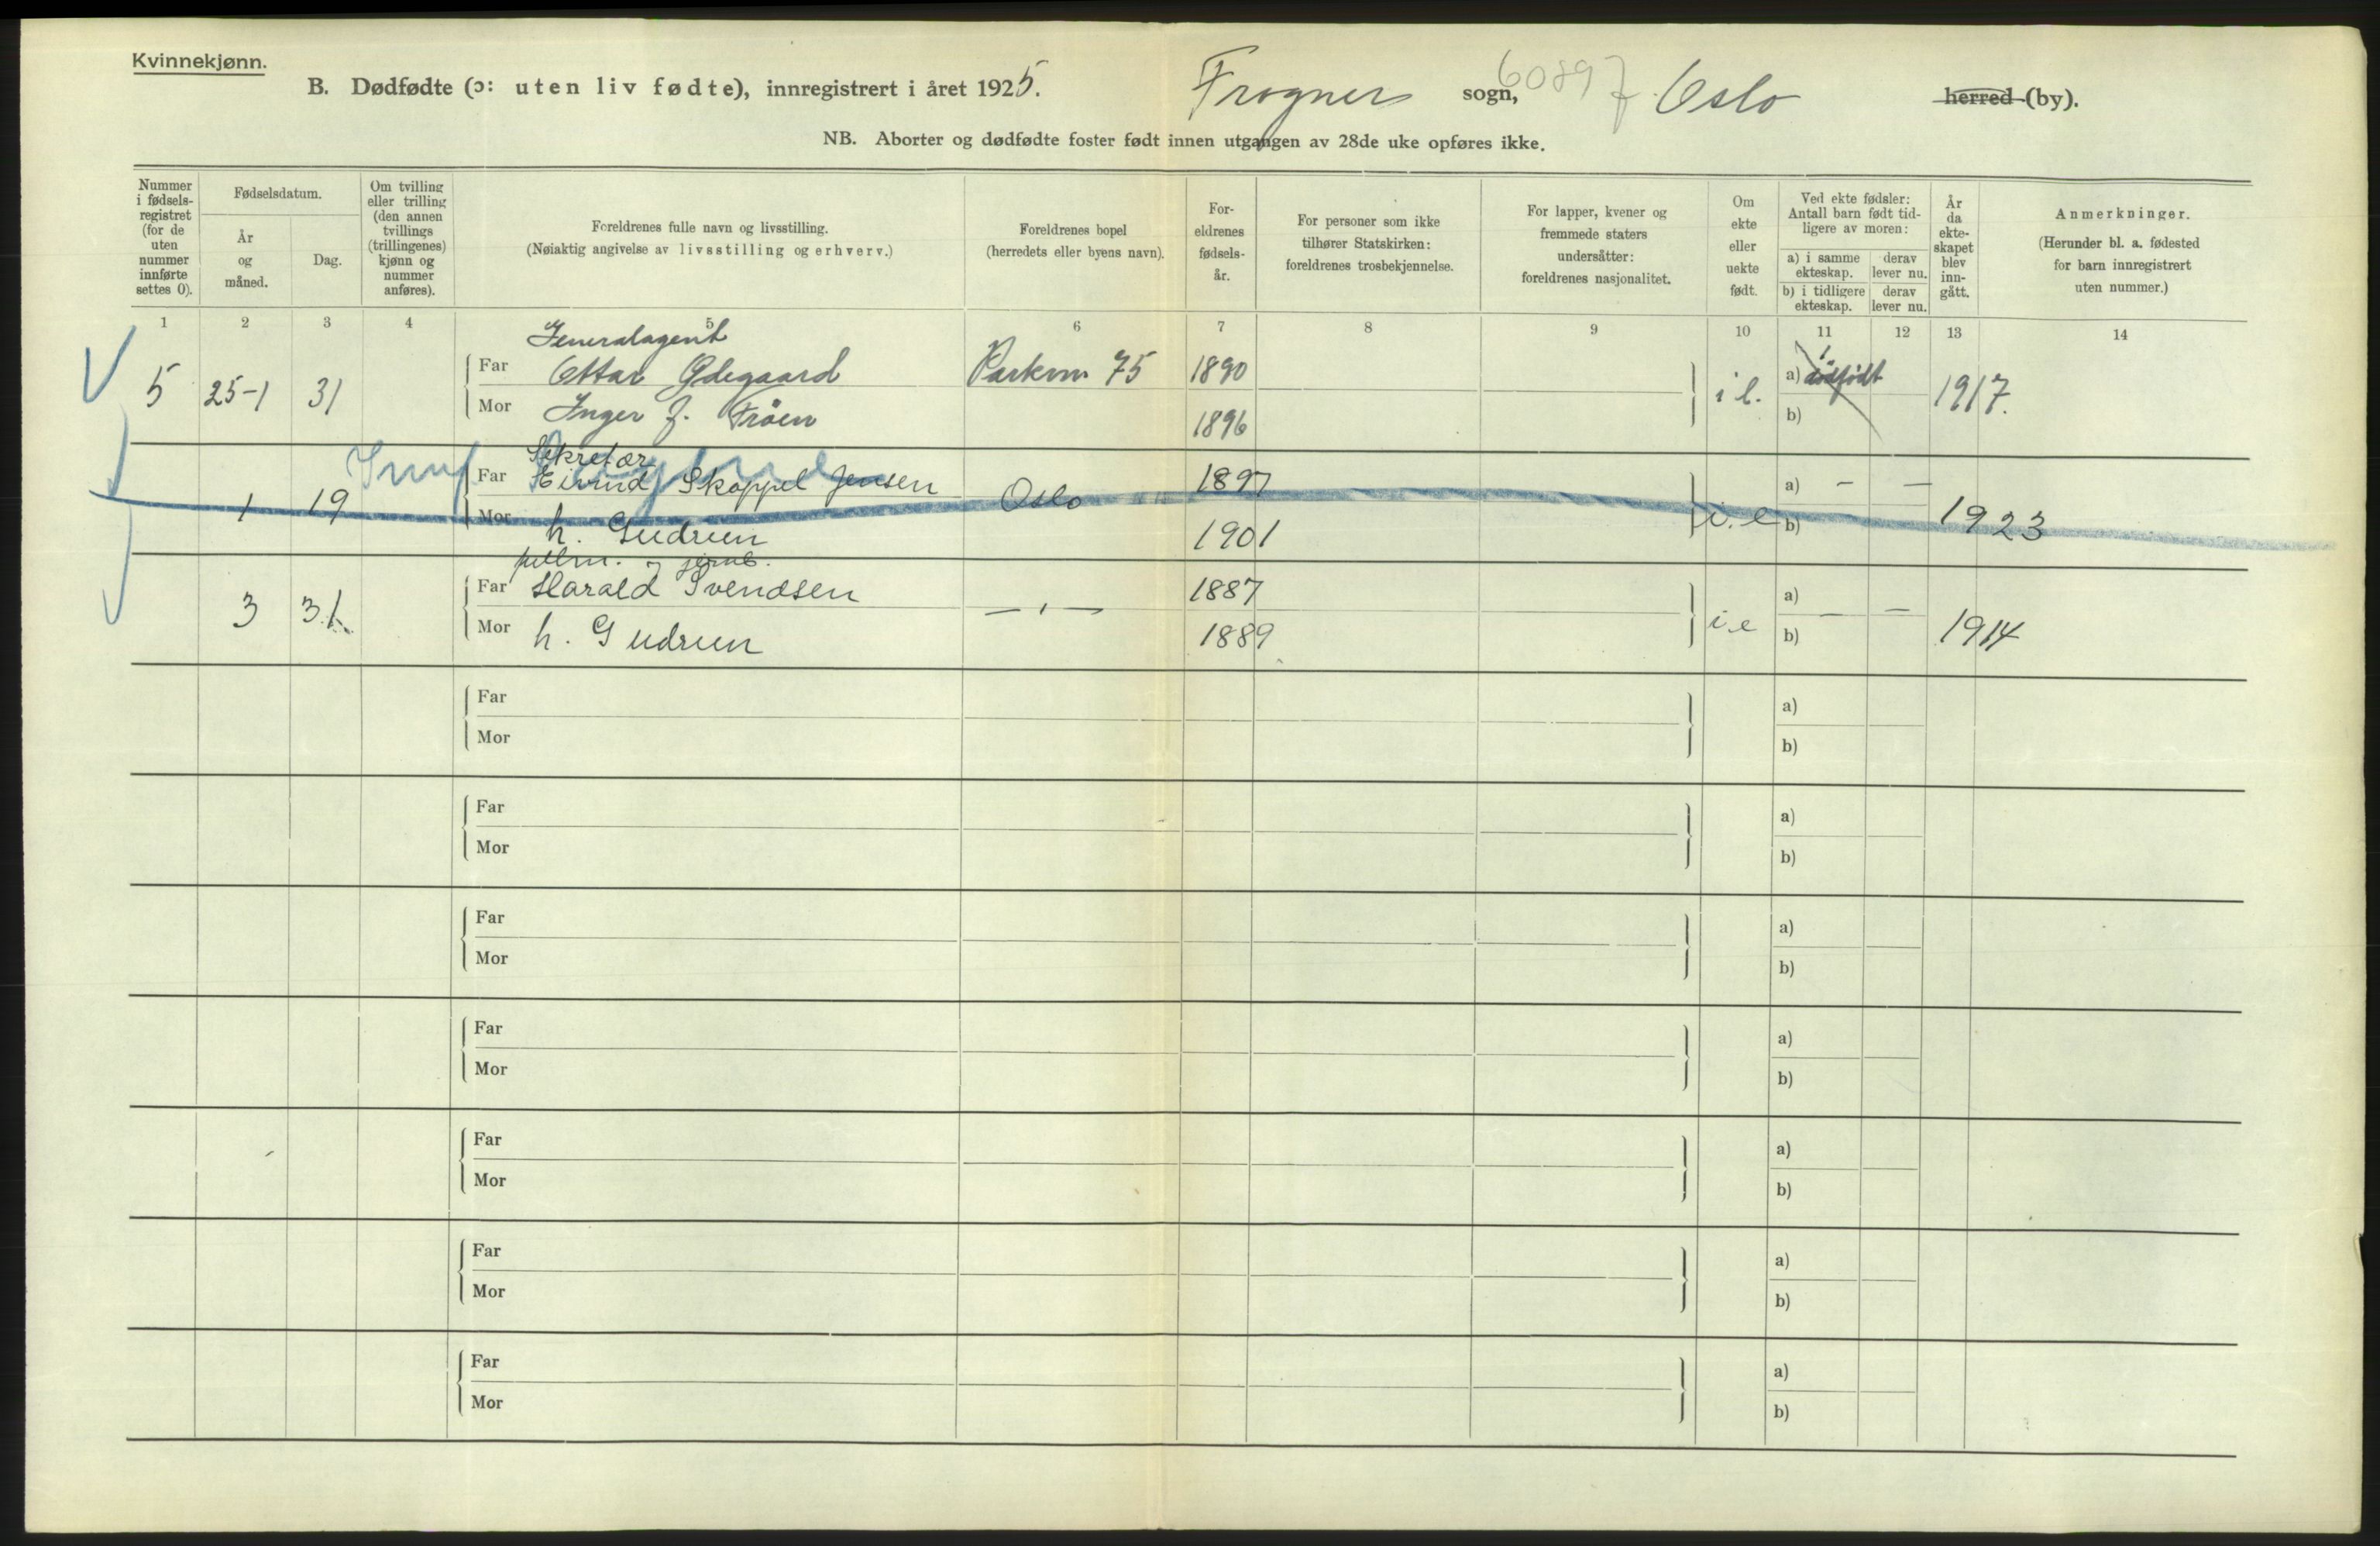 Kvinnekjønn.
B. Dødfødte (ɔ: uten liv fødte), innregistrert i året 1925. Frogner sogn, 60897 Oslo herred (by).
NB. Aborter og dødfødte foster født innen utgangen av 28de uke opføres ikke.
Nummer i fødsels-registret (for de uten nummer innførte settes 0).
Fødselsdatum.
År og måned.
Dag.
Om tvilling eller trilling (den annen tvillings (trillingenes) kjønn og nummer anføres).
Foreldrenes fulle navn og livsstilling.
(Nøiaktig angivelse av livsstilling og erhverv.)
Foreldrenes bopel
(herredets eller byens navn).
For-eldrenes fødsels-år.
For personer som ikke tilhører Statskirken: foreldrenes trosbekjennelse.
For lapper, kvener og fremmede staters undersåtter: foreldrenes nasjonalitet.
Om ekte eller uekte født.
Ved ekte fødsler: Antall barn født tid-ligere av moren:
a) i samme ekteskap.
derav lever nu.
b) i tidligere ekteskap.
derav lever nu.
År da ekte-skapet blev inn-gått.
Anmerkninger.
(Herunder bl. a. fødested for barn innregistrert uten nummer.)
1 2 3 4 5 6 7 8 9 10 11 12 13 14
Generalagent
5 25-1 31 Far Ottar Ødegaard Parkvn. 75 1890 a) dødfødt 1917.
Mor Inger J. Frøen 1896 b)
Sekretær
Far Eivind Skappel Jensen Oslo 1897 a) - -
1 19 Mor h. Gudrun 1901 i.e b) 1923
Far Harald Svendsen — " — 1887 a)
3 31. Mor h. Gudrun 1889 i.e b) - - 1914
Far a)
Mor b)
Far a)
Mor b)
Far a)
Mor b)
Far a)
Mor b)
Far a)
Mor b)
Far a)
Mor b)
Far a)
Mor b)